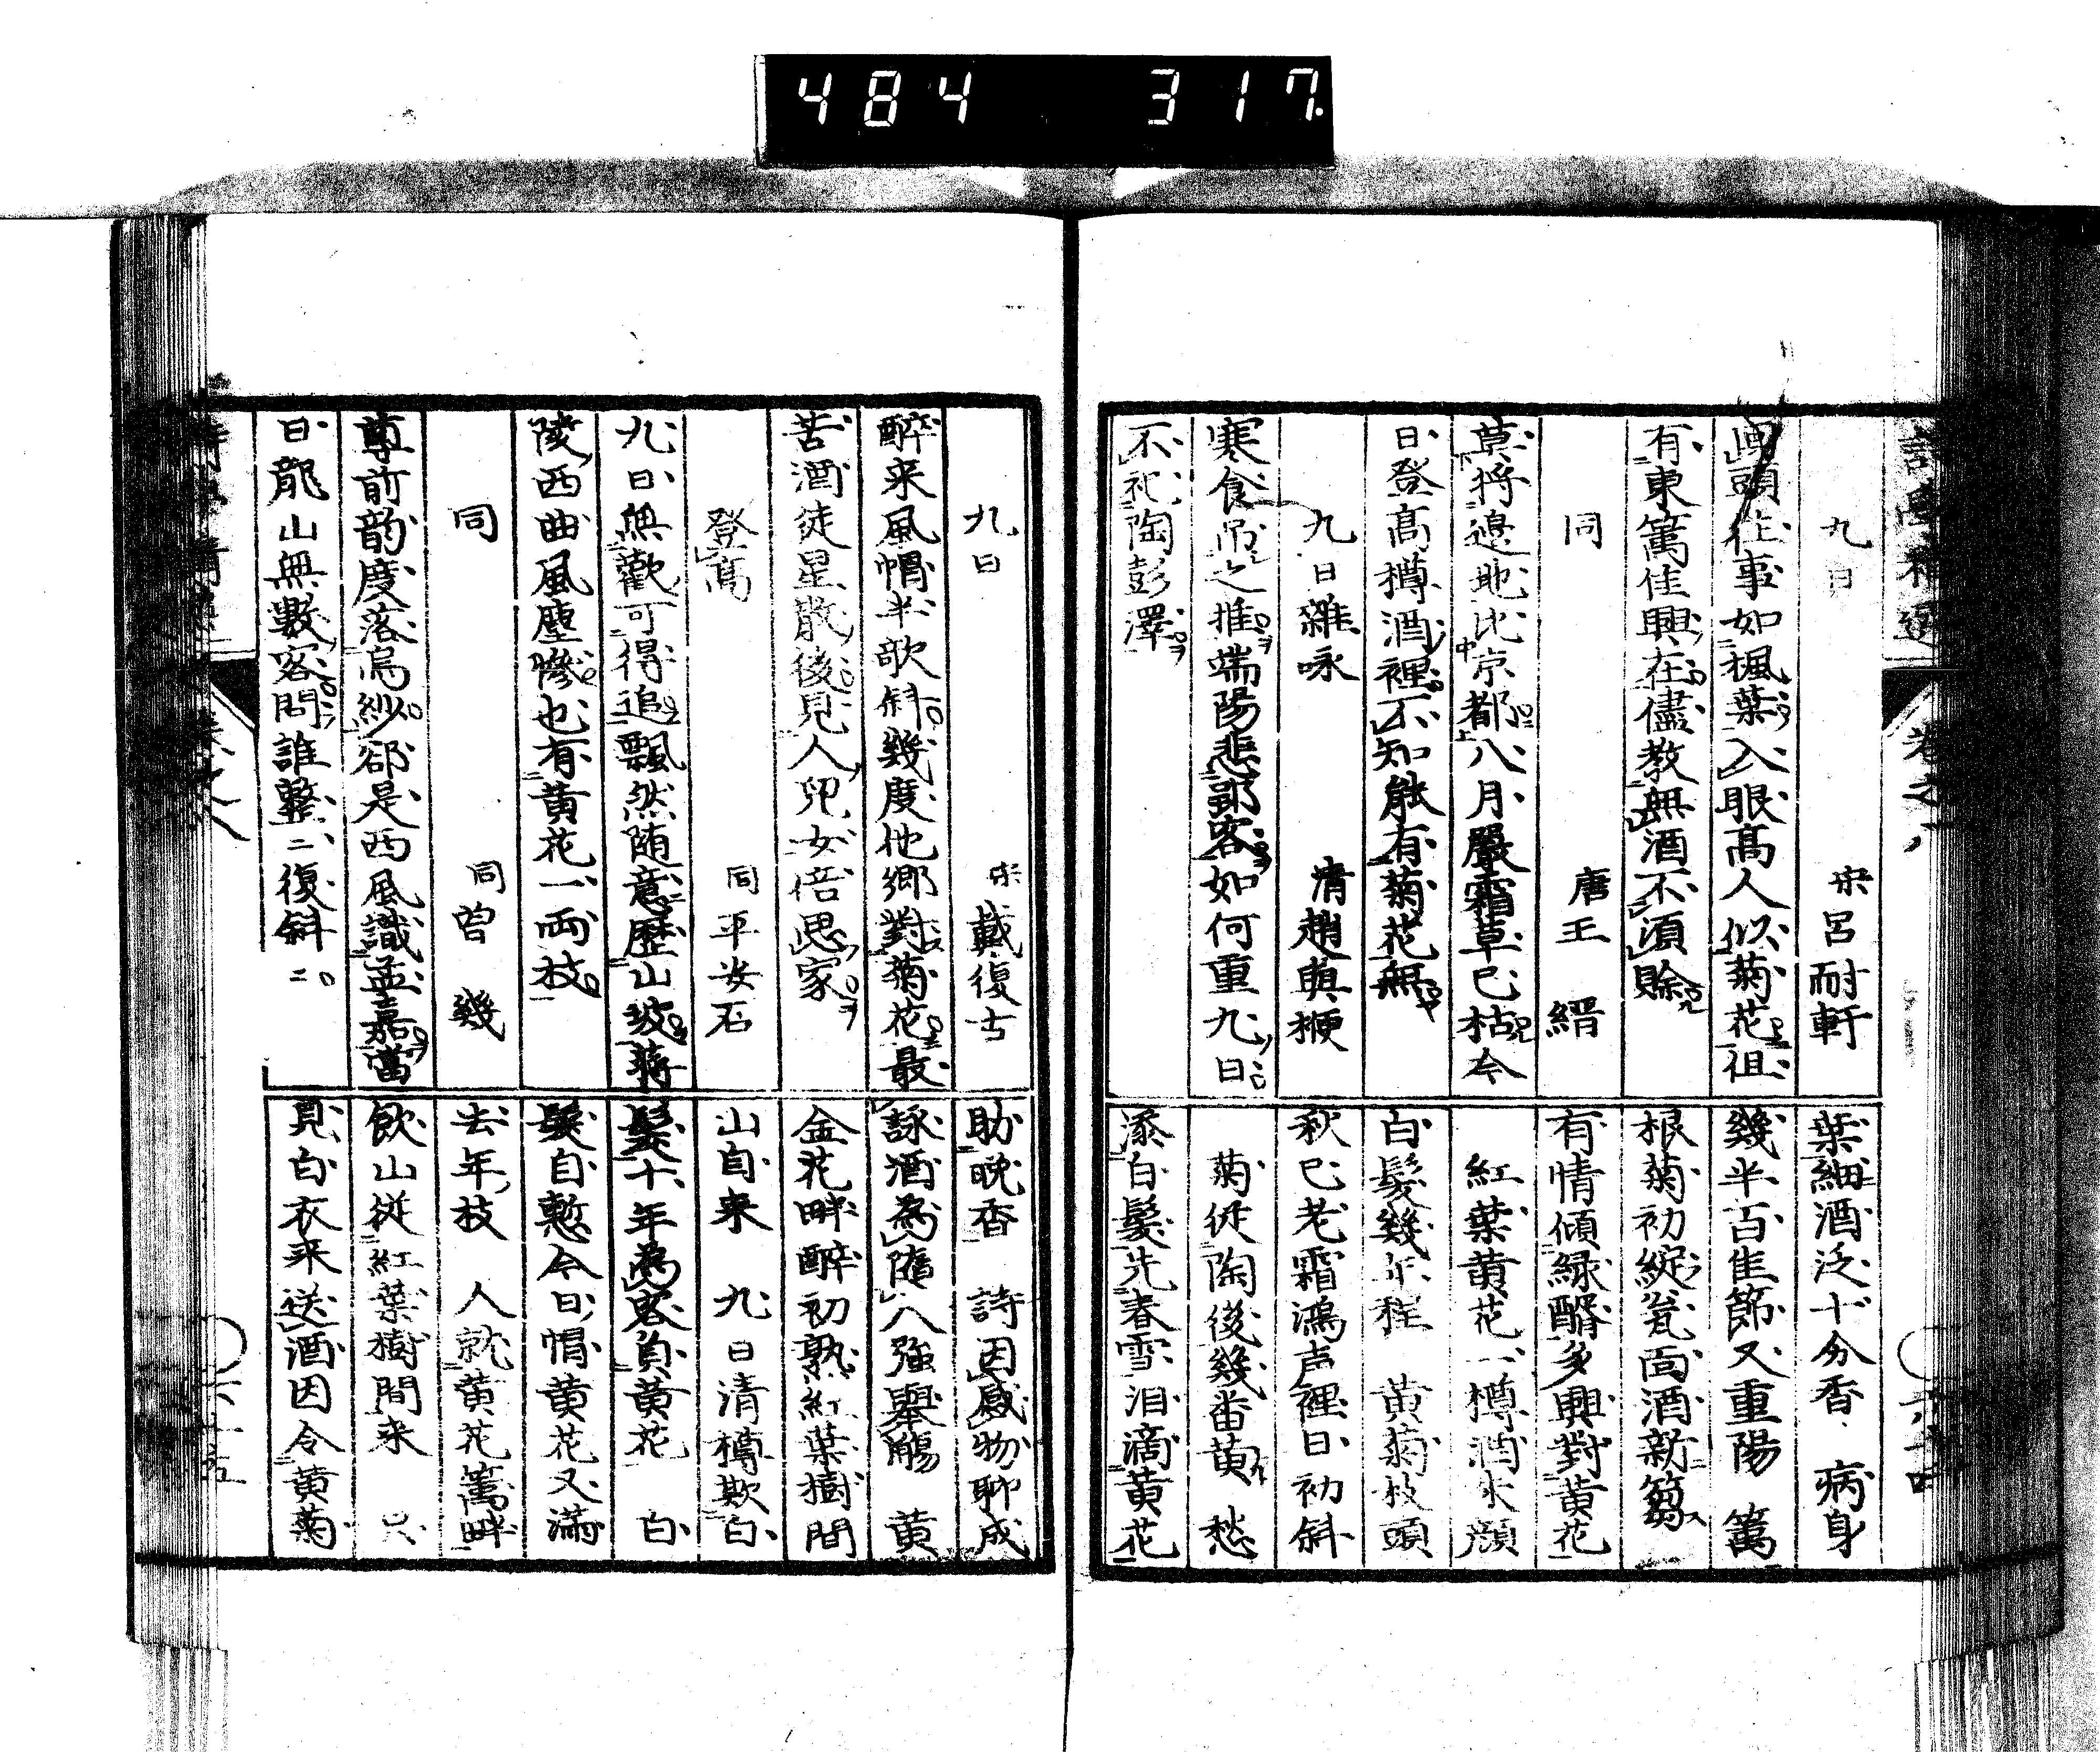 484 317
九日 宋呂耐軒
回頭往事如楓葉入眼高人似菊花徂
有東篱佳興在儘教無酒不須賒
同 唐王縉
莫將邊地比京都八月嚴霜草已枯今
日登高樽酒裡不知能有菊花無
九日雜咏 清趙輿梗
寒食吊之推端陽悲郢客如何重九日
不祀陶彭澤
葉細酒泛十分香 病身
幾半百佳節又重陽 篱
根菊初綻瓮面酒新篘
有情傾綠醑多興對黄花
紅葉黄花一樽酒衰顔
白髮幾年程 黄菊枝頭
秋已老霜鴻声裡日初斜
菊從陶後幾番黄 愁
添白鬓先春雪泪滴黄花
九日 宋戴復古
醉来風帽半欹斜幾度他鄉對菊花最
苦酒徒星散後見人兒女倍思家
登高 同平安石
九日無歡可得追飄然随意歷山坡蔣
陵西曲風塵慘也有黄花一両枝
同 同曾幾
尊前韵度落烏紗郤是西風識孟嘉當
日龍山無數客問誰整二復斜二
助晚香 詩因感物聊成
詠酒為隨人強舉觴 黄
金花畔醉初熟紅葉樹間
山自来 九日清樽欺白
髮十年為客負黄花 白
髮自慙今日帽黄花又滿
去年枝 人就黄花篱畔
飲山從紅葉樹間来 只
見白衣来送酒因令黄菊